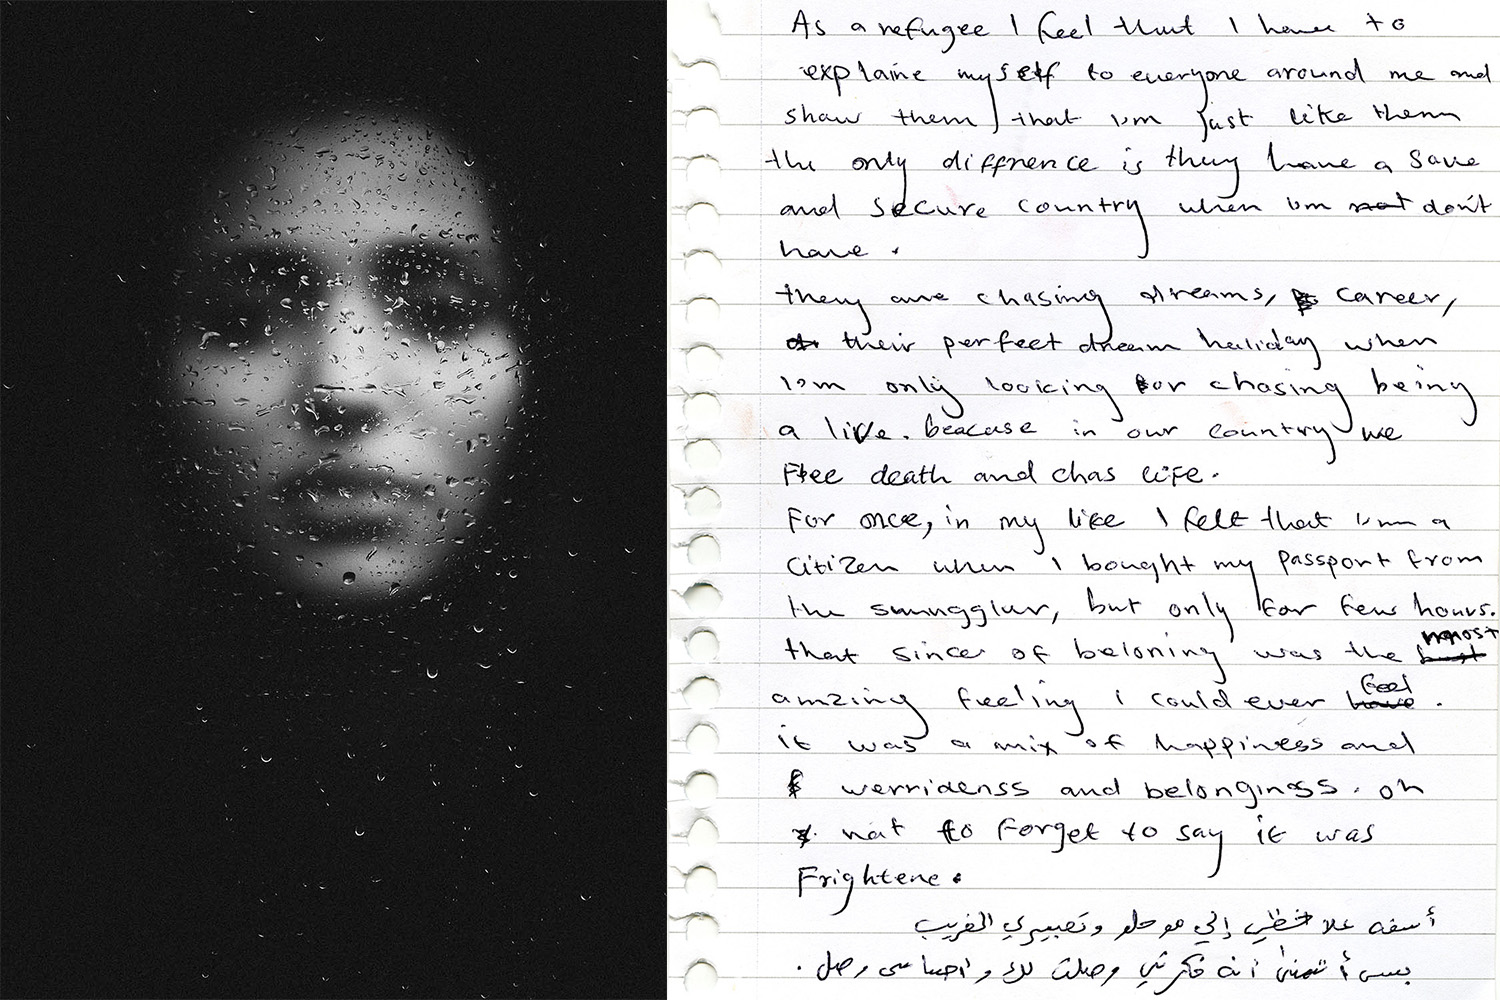 As a refugee I feel that I have to
explaine myself to everyone around me and
show them that i'm just like them
the only diffrence is they have a save
and secure country when i'm not don't
have.
they are chasing dreams, career,
their perfect dream haliday when
i'm only looking for chasing being
a live. beacuse in our country we
Flee death and chas life.
For once, in my life I felt that i'm a
citizen when I bought my passport from
the smugglur, but only for few hours.
that since of beloning was the most
amzing feeling i could ever feel.
it was a mix of happiness and
werridenss and belonginess. oh
not to forget to say it was
Frightene.
أسفه علا خطي إلي مو حلو وتعبيري الغريب
بس أتمنى أنه فكرتي وصلت لك واحساسي وصل.